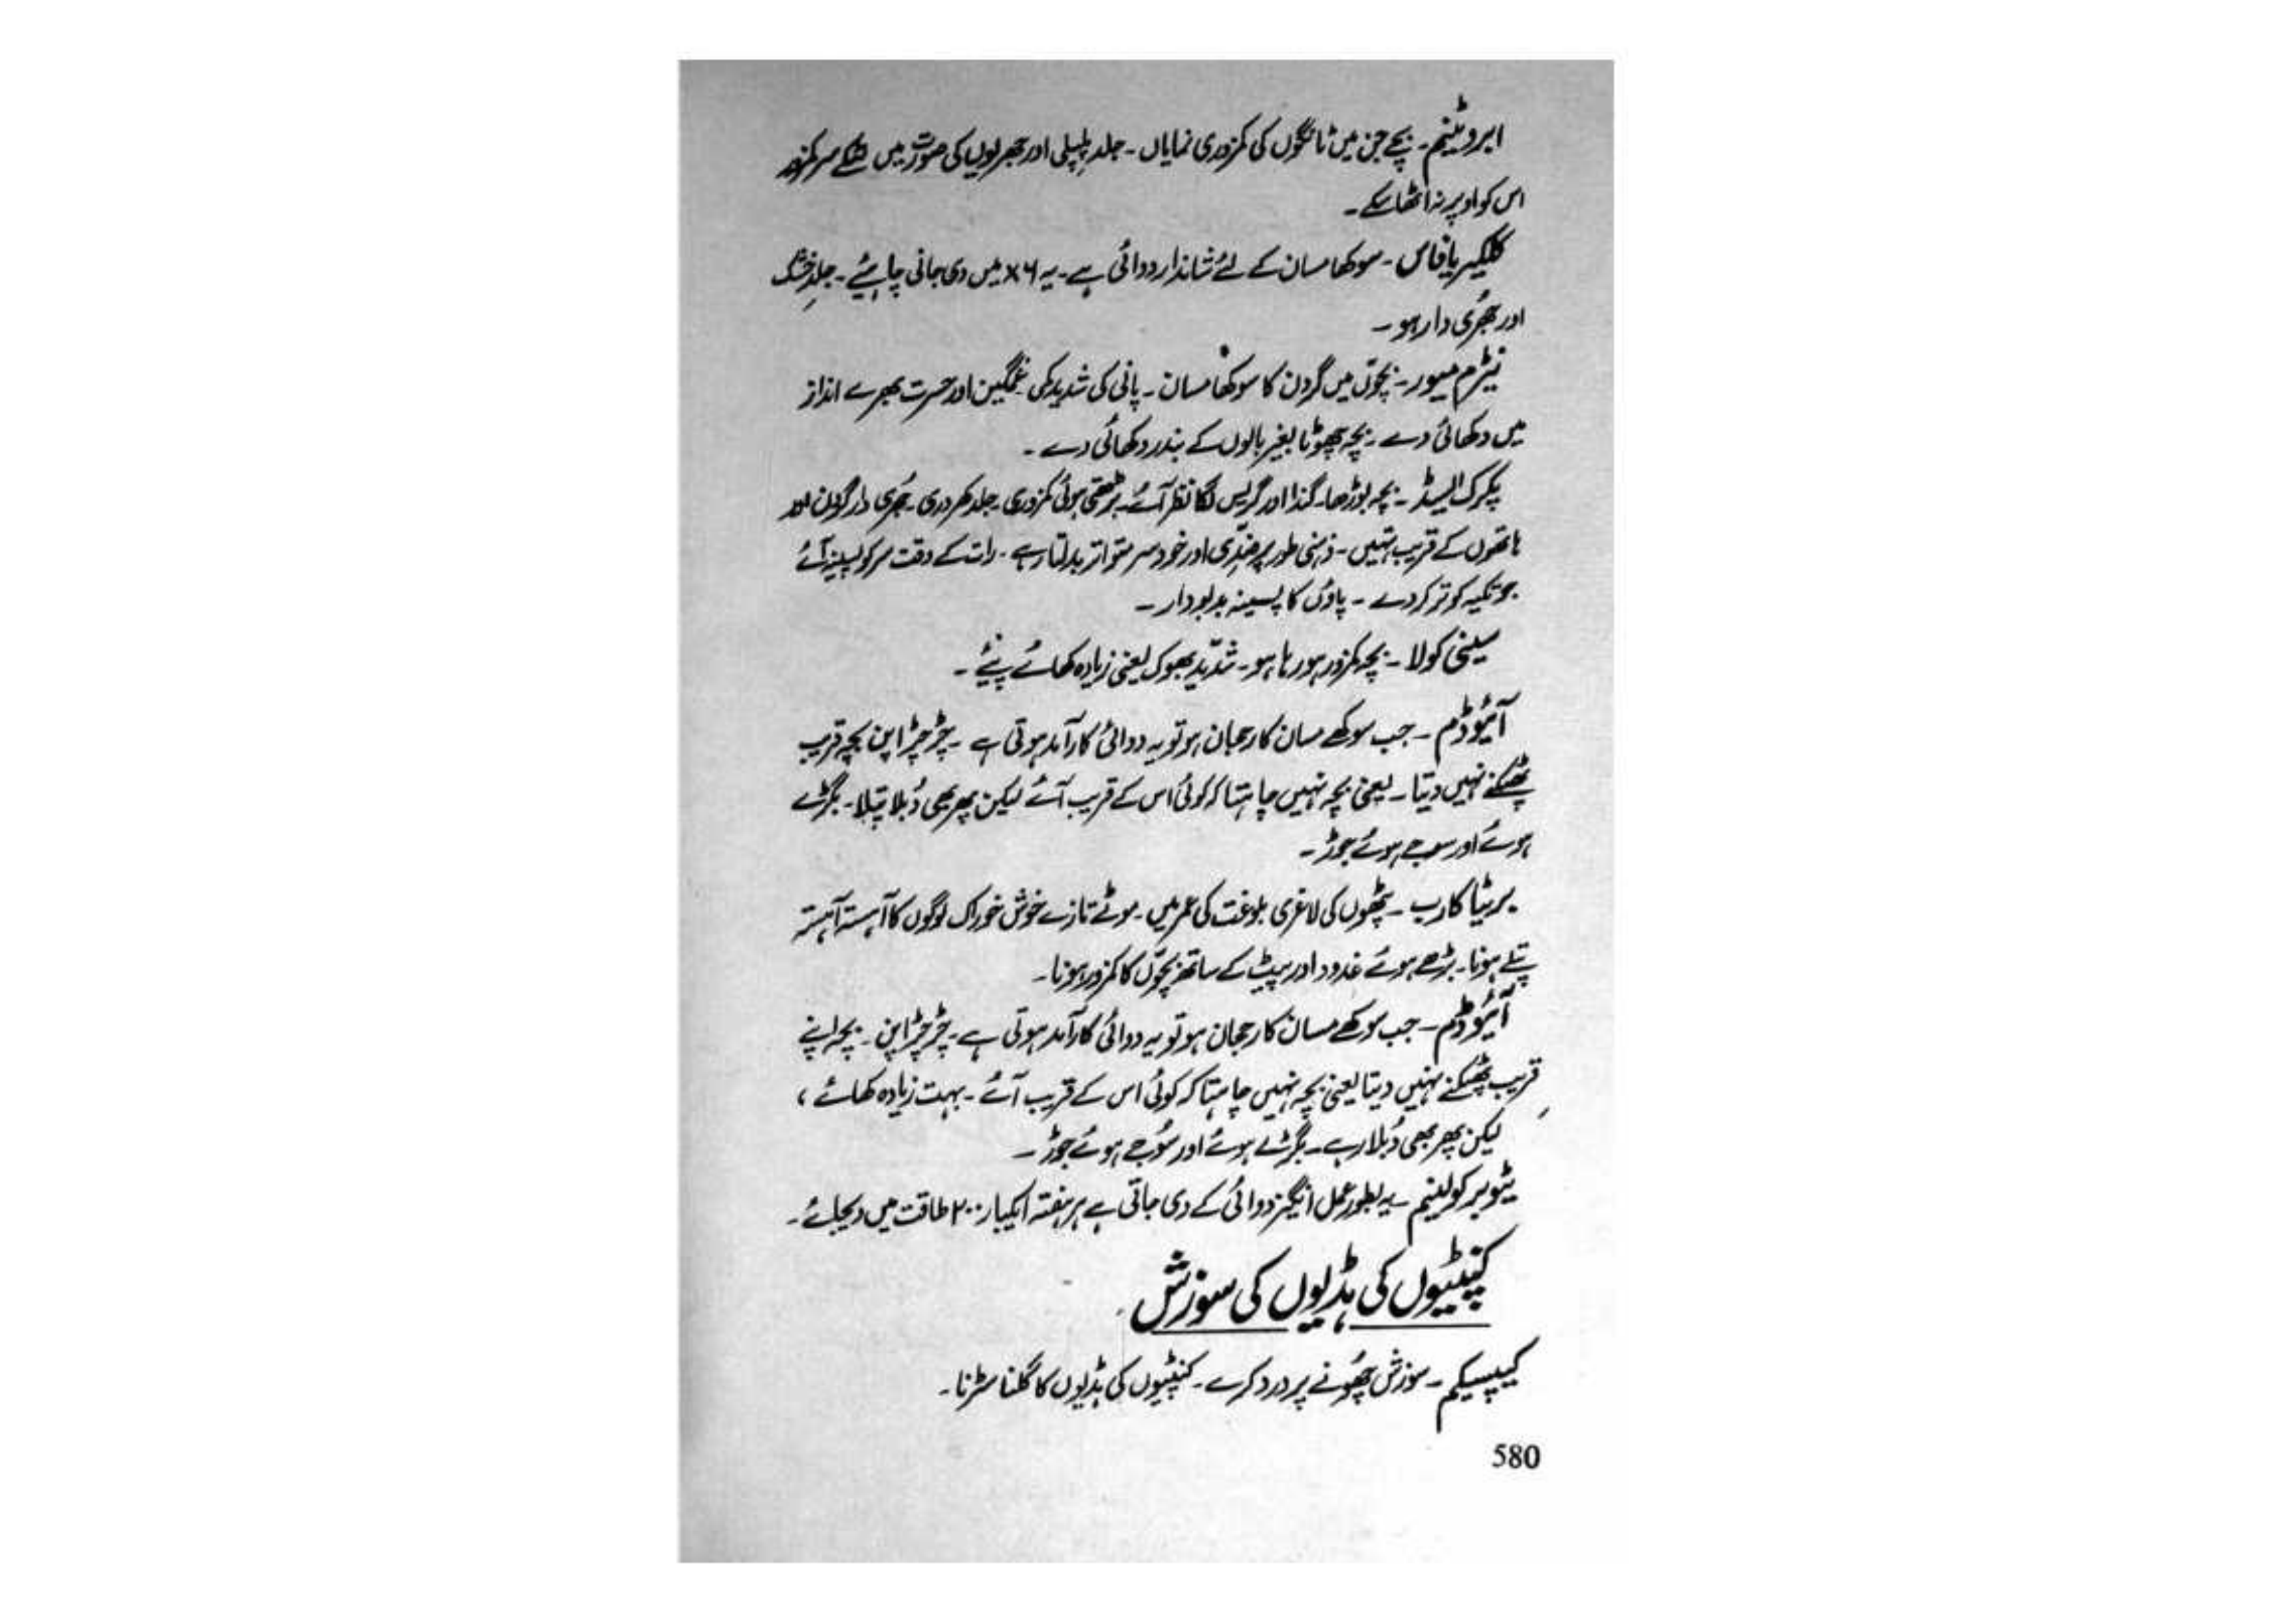 ابروٹینم۔ بچے جن میں ٹانگوں کی کمزوری نمایاں۔ جلد پلپلی اور جھریوں کی صورت میں لٹکے سر کمزور
اس کو اوپر نہ اٹھا سکے۔
کلکیریا فاس۔ سوکھا مسان کے لئے شاندار دوائی ہے۔ یہ ۶x میں دی جانی چاہیئے۔ جلد خشک
اور جھُری دار ہو۔
نیٹرم میور۔ بچوّں میں گردن کا سوکھا مسان۔ پانی کی شدید کمی غمگین اور حسرت بھرے انداز
میں دکھائی دے۔ بچہ چھوٹا بغیر بالوں کے بندر دکھائی دے۔
پکرک ایسڈ۔ بچہ بوڑھا۔ گندا اور گریس لگا نظر آئے۔ بڑھتی ہوئی کمزوری۔ جلد کھردری۔ جھُری دار گردن اور
ہاتھوں کے قریب تہیں۔ ذہنی طور پر ضِدّی اور خود سر متواتر بدلتا رہے۔ رات کے وقت سر کو پسینہ آئے
جو تکیہ کو تر کر دے۔ پاؤں کا پسینہ بدبودار۔
سینی کولا۔ بچہ کمزور ہو رہا ہو۔ شدّید بھوک یعنی زیادہ کھائے پیئے۔
آئیوڈم۔ جب سوکھے مسان کا رحجان ہو تو یہ دوائی کارآمد ہوتی ہے۔ چڑچڑاپن بچہ قریب
پھٹکنے نہیں دیتا۔ یعنی بچہ نہیں چاہتا کہ کوئی اس کے قریب آئے لیکن پھر بھی دُبلا پتلا۔ بگڑے
ہوئے اور سوجے ہوئے جوڑ۔
بریٹا کارب۔ پٹھوں کی لاغری بلوغت کی عمر میں۔ موٹے تازے خوش خوراک لوگوں کا آہستہ آہستہ
پتلے ہونا۔ بڑھے ہوئے غدود اور پیٹ کے ساتھ بچوّں کا کمزور ہونا۔
آئیوڈم۔ جب سوکھے مسان کا رحجان ہو تو یہ دوائی کارآمد ہوتی ہے۔ چڑچڑاپن۔ بچہ اپنے
قریب پھٹکنے نہیں دیتا یعنی بچہ نہیں چاہتا کہ کوئی اس کے قریب آئے۔ بہت زیادہ کھائے،
لیکن پھر بھی دُبلا رہے۔ بگڑے ہوئے اور سُوجے ہوئے جوڑ۔
ٹیوبرکولینم۔ یہ بطور عمل انگیز دوائی کے دی جاتی ہے ہر ہفتہ ایکبار ۲۰۰ طاقت میں دیجائے۔
کنپٹیوں کی ہڈیوں کی سوزش
کیپسیکم۔ سوزش چھُونے پر درد کرے۔ کنپٹیوں کی ہڈیوں کا گلنا سڑنا۔
580